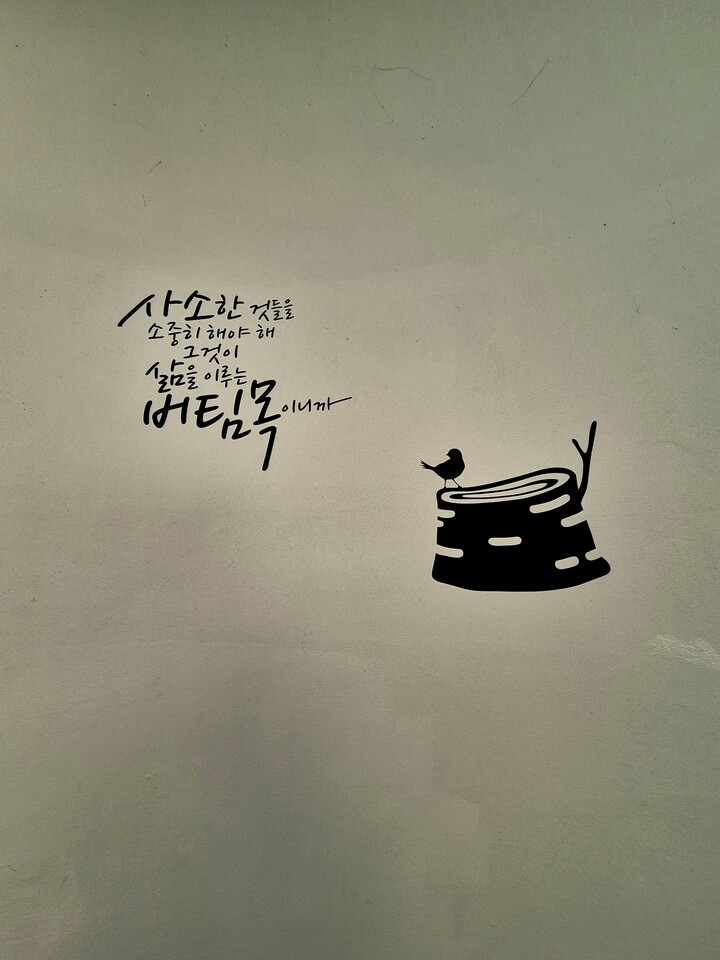 사소한 것들을
소중히 해야 해
그것이
삶을 이루는
버팀목이니까